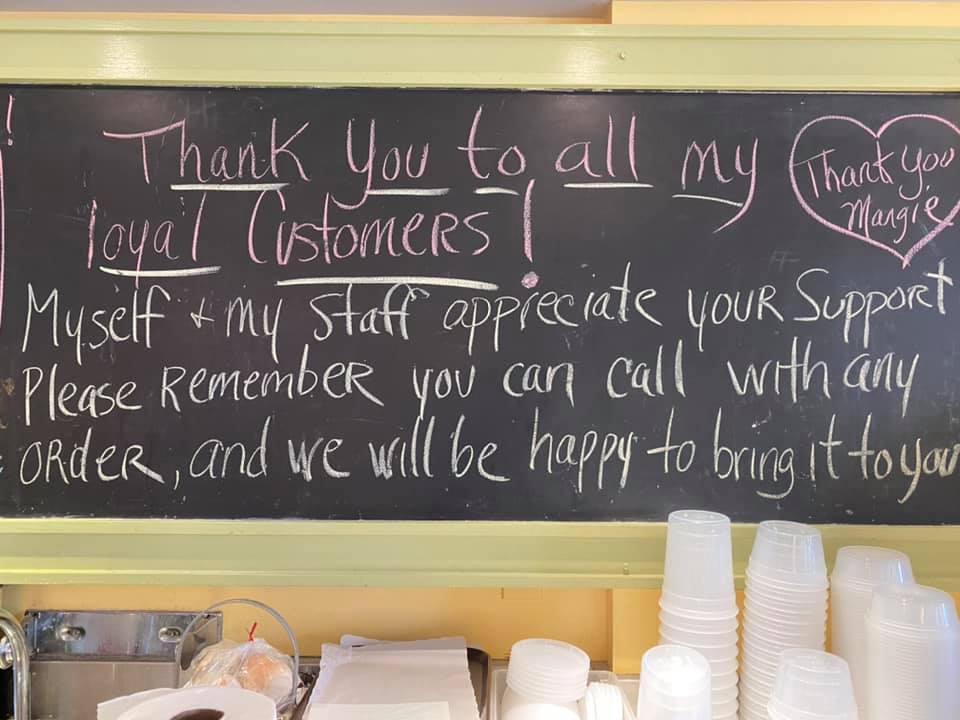 Thank You to all my
loyal Customers!
Thank you
Mangie
Myself + my Staff appreciate your Support
Please Remember you can call with any
order, and we will be happy to bring it to you
!